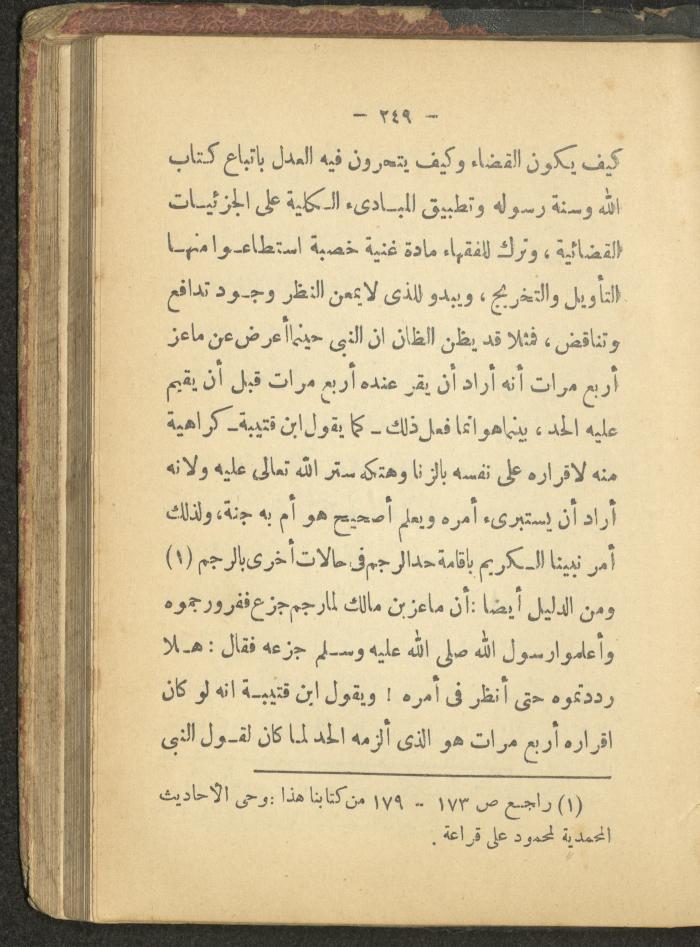 - ٢٤٩ -
كيف يكون القضاء وكيف يتحرون فيه العدل باتباع كتاب
الله وسنة رسوله وتطبيق المبادىء الكلية على الجزئيات
القضائية ، وترك للفقهاء مادة غنية خصبة استطاعوا منها
التأويل والتخريج ، ويبدو للذى لا يمعن النظر وجود تدافع
وتناقض ، فمثلا قد يظن الظان ان النبى حينما أعرض عن ماعز
أربع مرات أنه أراد أن يقر عنده أربع مرات قبل أن يقيم
عليه الحد ، بينما هو انما فعل ذلك - كما يقول ابن قتيبة - كراهية
منه لاقراره على نفسه بالزنا وهتكه ستر الله تعالى عليه ولانه
أراد أن يستبرىء أمره ويعلم أصحيح هو أم به جنة ، ولذلك
أمر نبينا الكريم باقامة حد الرجم فى حالات أخرى بالرجم (١)
ومن الدليل أيضا : أن ماعز بن مالك لما رجم جزع ففر ورجموه
وأعلموا رسول الله صلى الله عليه وسلم جزعه فقال : هلا
رددتموه حتى أنظر فى أمره ! ويقول ابن قتيبة انه لو كان
اقراره أربع مرات هو الذى ألزمه الحد لما كان لقول النبى
(١) راجع ص ١٧٣ - ١٧٩ من كتابنا هذا : وحى الأحاديث
المحمدية لمحمود على قراعة .